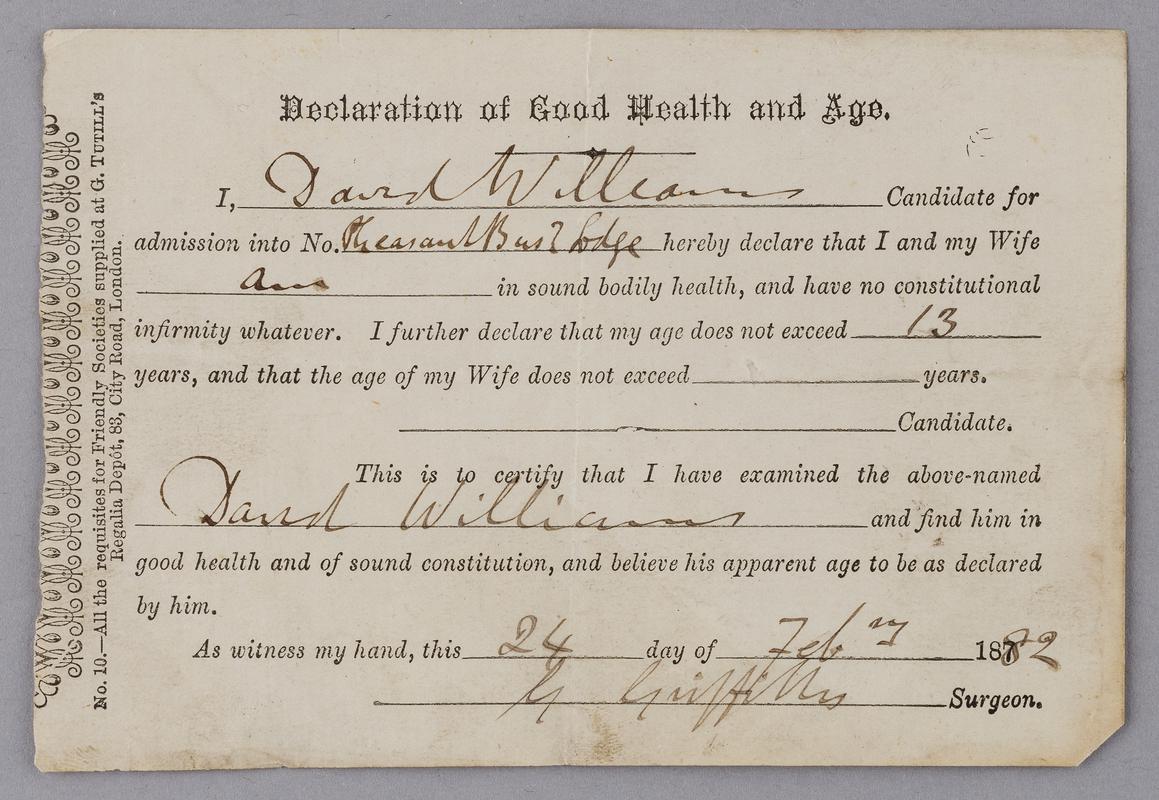 Declaration of Good Health and Age.
I, David Williams Candidate for
admission into No. Pheasant Bush Lodge hereby declare that I and my Wife
am in sound bodily health, and have no constitutional
infirmity whatever. I further declare that my age does not exceed 13
years, and that the age of my Wife does not exceed years.
Candidate.
This is to certify that I have examined the above-named
David Williams and find him in
good health and of sound constitution, and believe his apparent age to be as declared
by him.
As witness my hand, this 24 day of Febry 1882
G Griffiths Surgeon.
No. 10.—All the requisites for Friendly Societies supplied at G. TUTILL'S
Regalia Depôt, 83, City Road, London.